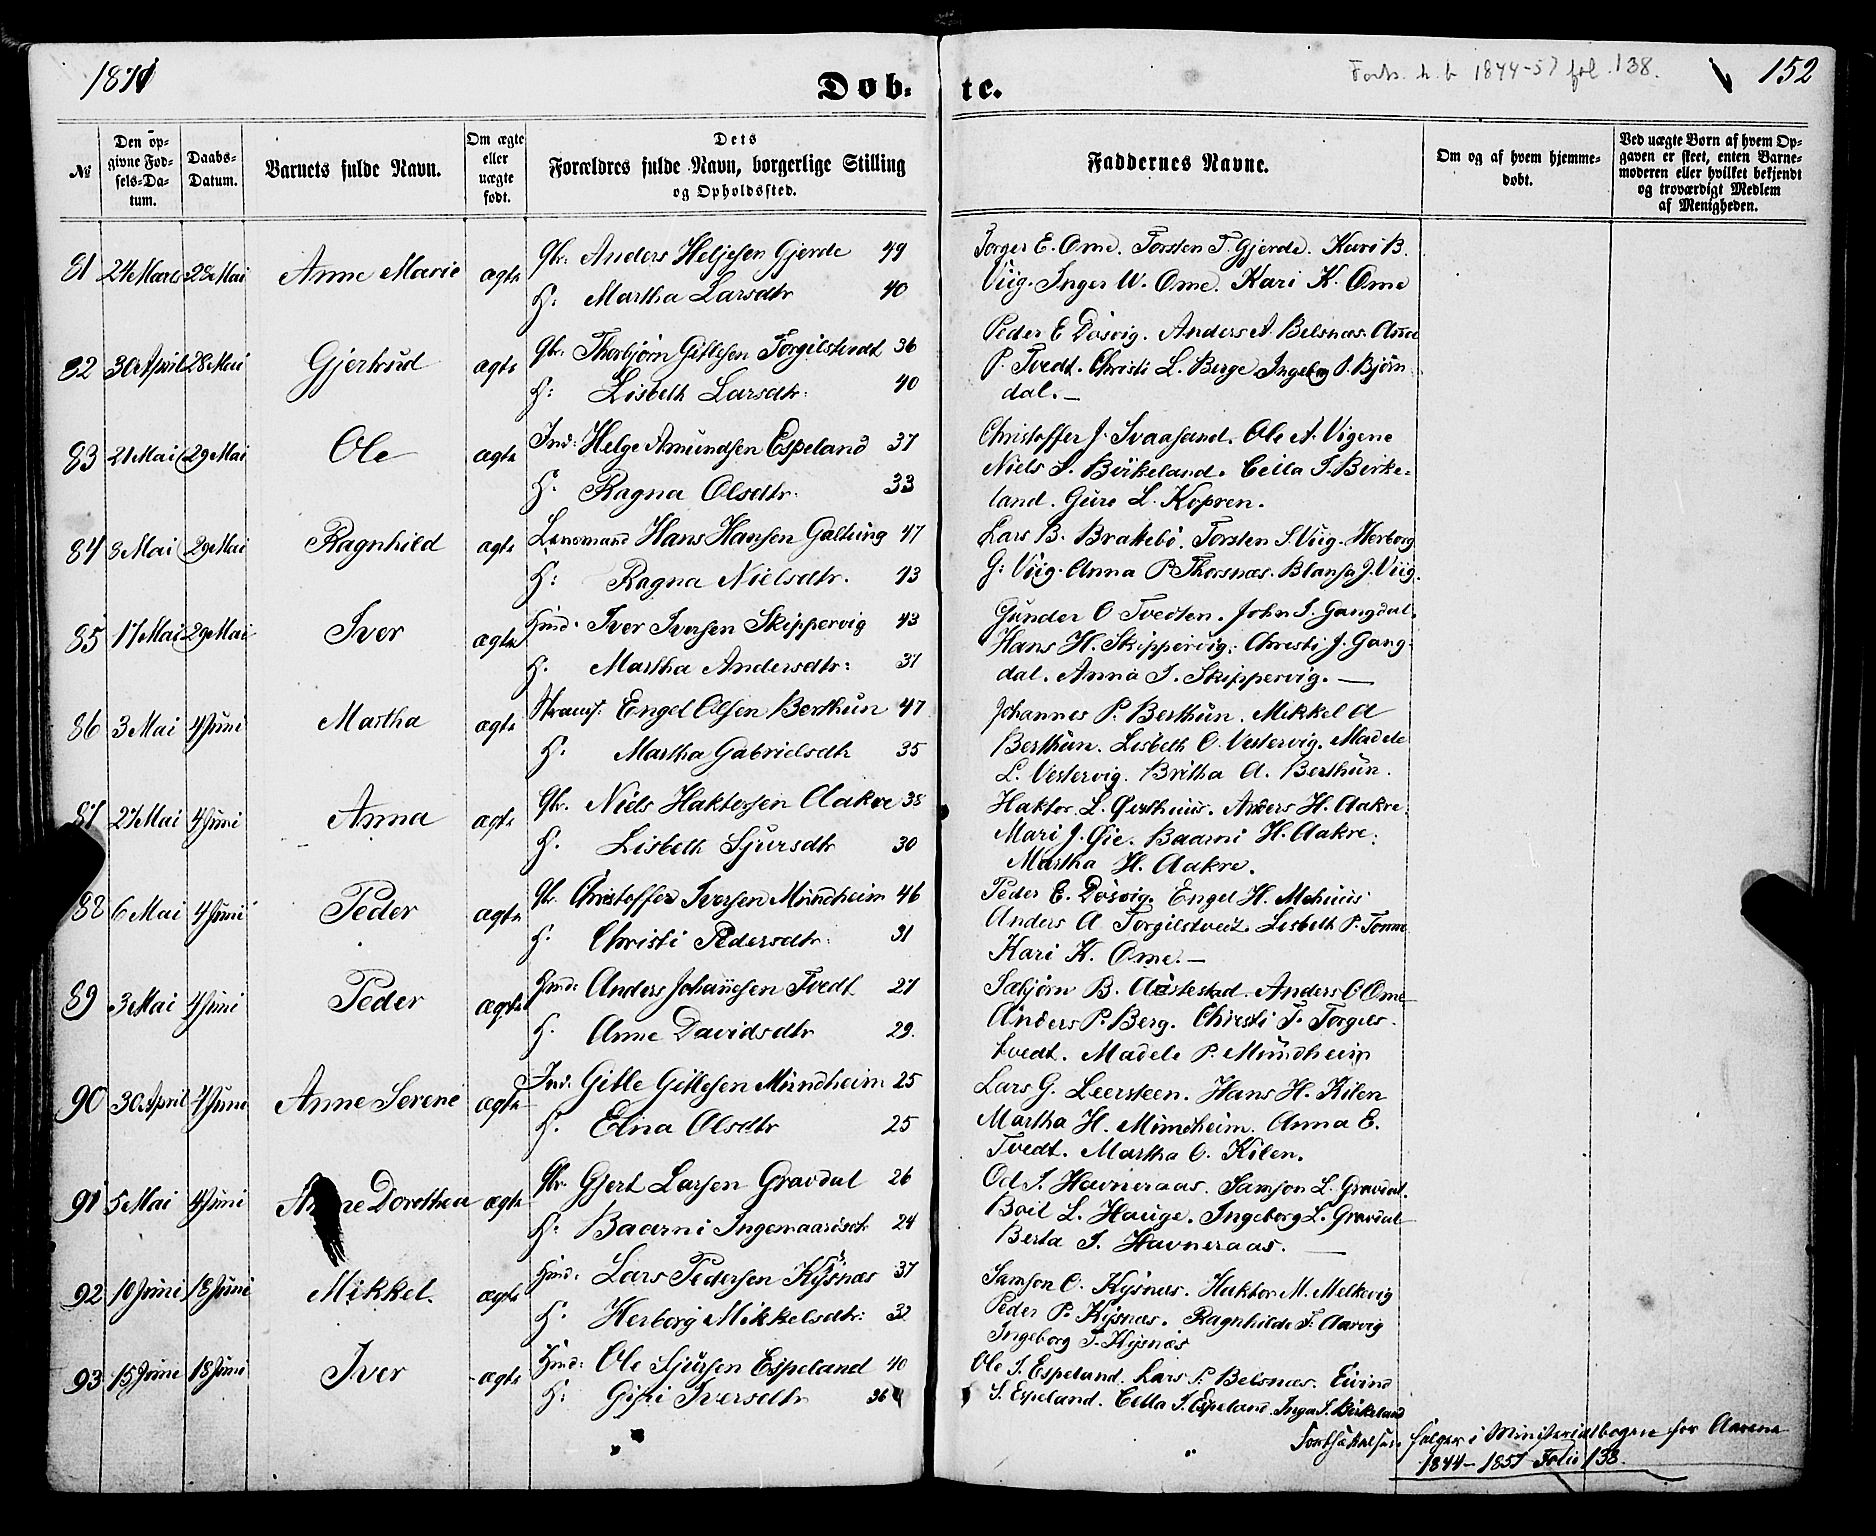 1871
Døb-
te.
Forts. h. b 1844-57 fol. 138.
152
№
Den op-
givne Fød-
sels-Da-
tum.
Daabs-
Datum.
Barnets fulde Navn.
Om ægte
eller
uægte
født.
Dets
Forældres fulde Navn, borgerlige Stilling
og Opholdssted.
Faddernes Navne.
Om og af hvem hjemme-
døbt.
Ved uægte Børn af hvem Op-
gaven er skeet, enten Barne-
moderen eller hvilket bekjendt
og troværdigt Medlem
af Menigheden.
81 24 Marts 28 Mai Anne Marie ægte Gbr: Anders Heljesen Gjerde 49
H: Martha Larsdtr 40
Torger E. Ome. Torsten T. Gjerde. Kari B.
Viig. Inger W. Ome. Kari K. Ome
82 30 April 28 Mai Gjertrud ægte Gbr: Thorbjørn Gitlesen Torgilstvedt 36
H: Lisbeth Larsdtr: 40
Peder E Døsvig. Anders A. Belsnæs. Anna
P. Tvedt. Christi L. Berge Ingebg P. Bjørn
dal. —
83 21 Mai 29 Mai Ole ægte Ind: Helge Amundsen Espeland 37
H: Ragna Olsdtr: 33
Christoffer J. Svaasand. Ole A. Vigene
Niels S. Birkeland. Cella I. Birke-
land. Guro L. Kopren.
84 3 Mai 29 Mai Ragnhild ægte Lensmand Hans Hansen Galtung 47
H: Ragna Nielsdtr. 43
Lars B. Brattebø. Torsten S. Viig. Herborg
G. Viig. Anna P. Thorsnæs. Blansa J. Viig.
85 17 Mai 29 Mai Iver ægte Hmd: Iver Iversen Skippervig 43
H. Martha Andersdtr: 37
Gunder O Tvedten. John I. Gangdal.
Hans H. Skippervig. Christi J. Gang-
dal. Anna I. Skippervig. —
86 3 Mai 4 Juni Martha ægte Strands: Engel Olsen Berthun 47
H: Martha Gabrielsdtr 35
Johannes P. Berthun. Mikkel A
Berthun. Lisbeth O. Vestervig. Madele
L. Vestervig. Britha A. Berthun.
87 27 Mai 4 Juni Anna ægte Gbr. Niels Haktorsen Aakre 38
H. Lisbeth Sjursdtr 30
Haktor L. Øvsthuus. Anders H. Aakre.
Mari J. Øie. Baarni H. Aakre.
Martha H. Aakre.
88 6 Mai 4 Juni Peder ægte Gbr. Christoffer Iversen Mundheim 46
H. Christi Pedersdtr: 31
Peder E. Døsvig. Engel H. Mehuus
Anders A Torgilstveit Lisbeth P. Tomme
Kari K. Ome. —
89 3 Mai 4 Juni Peder ægte Hmd: Anders Johannesen Tvedt 27
H. Anne Davidsdtr 29.
Sabjørn B. Austestad. Anders O Ome
Anders P. Berg. Christi T. Torgils-
tvedt. Madele P. Mundheim
90 30 April 4 Juni Anne Serene ægte Ind. Gitle Gitlesen Mundheim 25
H. Elina Olsdtr 25
Lars G. Leersteen. Hans H. Kilen
Martha H. Mundheim. Anna E.
Tvedt. Martha O. Kilen.
91 5 Mai 4 Juni Anne Dorothea ægte Gbr. Gjert Larsen Gravdal 26
H: Baarni Ingemaarisdt 24
Od I. Havneraas. Samson L. Gravdal.
Boil L. Hauge. Ingeborg L. Gravdal
Berta I. Havneraas. —
92 10 Juni 18 Juni Mikkel. ægte Hmd. Lars Pedersen Kysnæs 37
H: Herborg Mikkelsdtr: 32
Samson O. Kysnæs. Haktor M. Melkevig
Peder P. Kysnæs. Ragnhilde T. Aarvig
Ingeborg T. Kysnæs
93 15 Juni 18 Juni Iver ægte Hmd: Ole Sjursen Espeland 40
H: Giri Iversdtr 36
Ole I. Espeland. Lars P. Belsnæs. Eivind
S. Espeland. Cella I. Espeland. Inga S. Birkeland
Fortsættelsen følger i Ministerialbogen for Aarene
1844 - 1857 Folio 138.